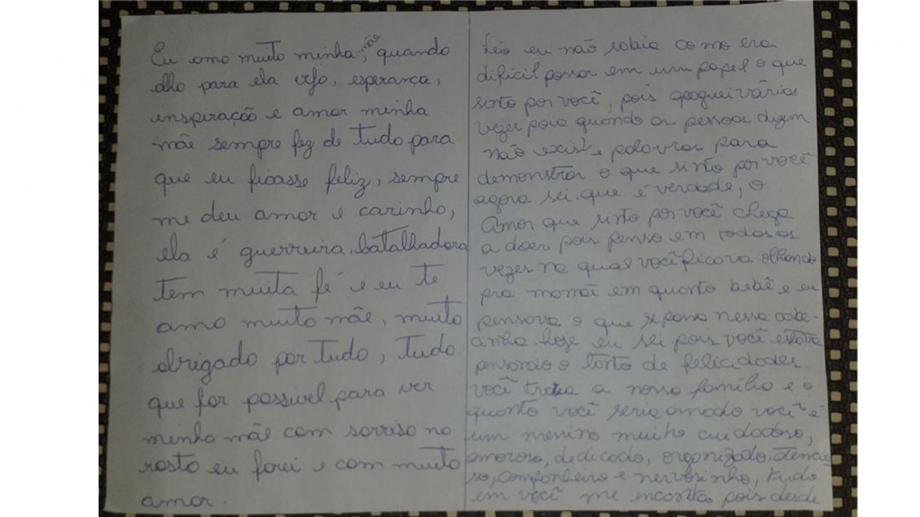 Eu amo muito minha mãe, quando
olho para ela vejo, esperança,
inspiração e amor minha
mãe sempre fez de tudo para
que eu ficasse feliz, sempre
me deu amor e carinho,
ela é guerreira, batalhadora
tem muita fé e eu te
amo muito mãe, muito
obrigado por tudo, tudo
que for possivel para ver
minha mãe com sorriso no
rosto eu farei e com muito
amor.
eu não sabia como era
difícil passar em um papel o que
sinto por você, pois apaguei várias
vezes pois quando as pessoas dizem
não existe palavras para
demonstrar o que sinto por você
agora sei que é verdade, o
Amor que sinto por você chega
a doer pois penso em todas as
vezes na qual você ficava olhando
pra mamãe em quanto bebê e eu
pensava o que se passa nessa cabe-
cinha hoje eu sei pois você estava
pensando o tanto de felicidades
você traria a nossa família e o
quanto você seria amado você é
um menino muito cuidadoso,
amoroso, dedicado, organizado, atencio
so, companheiro e nervosinho, tudo
em você me encanta pois desde